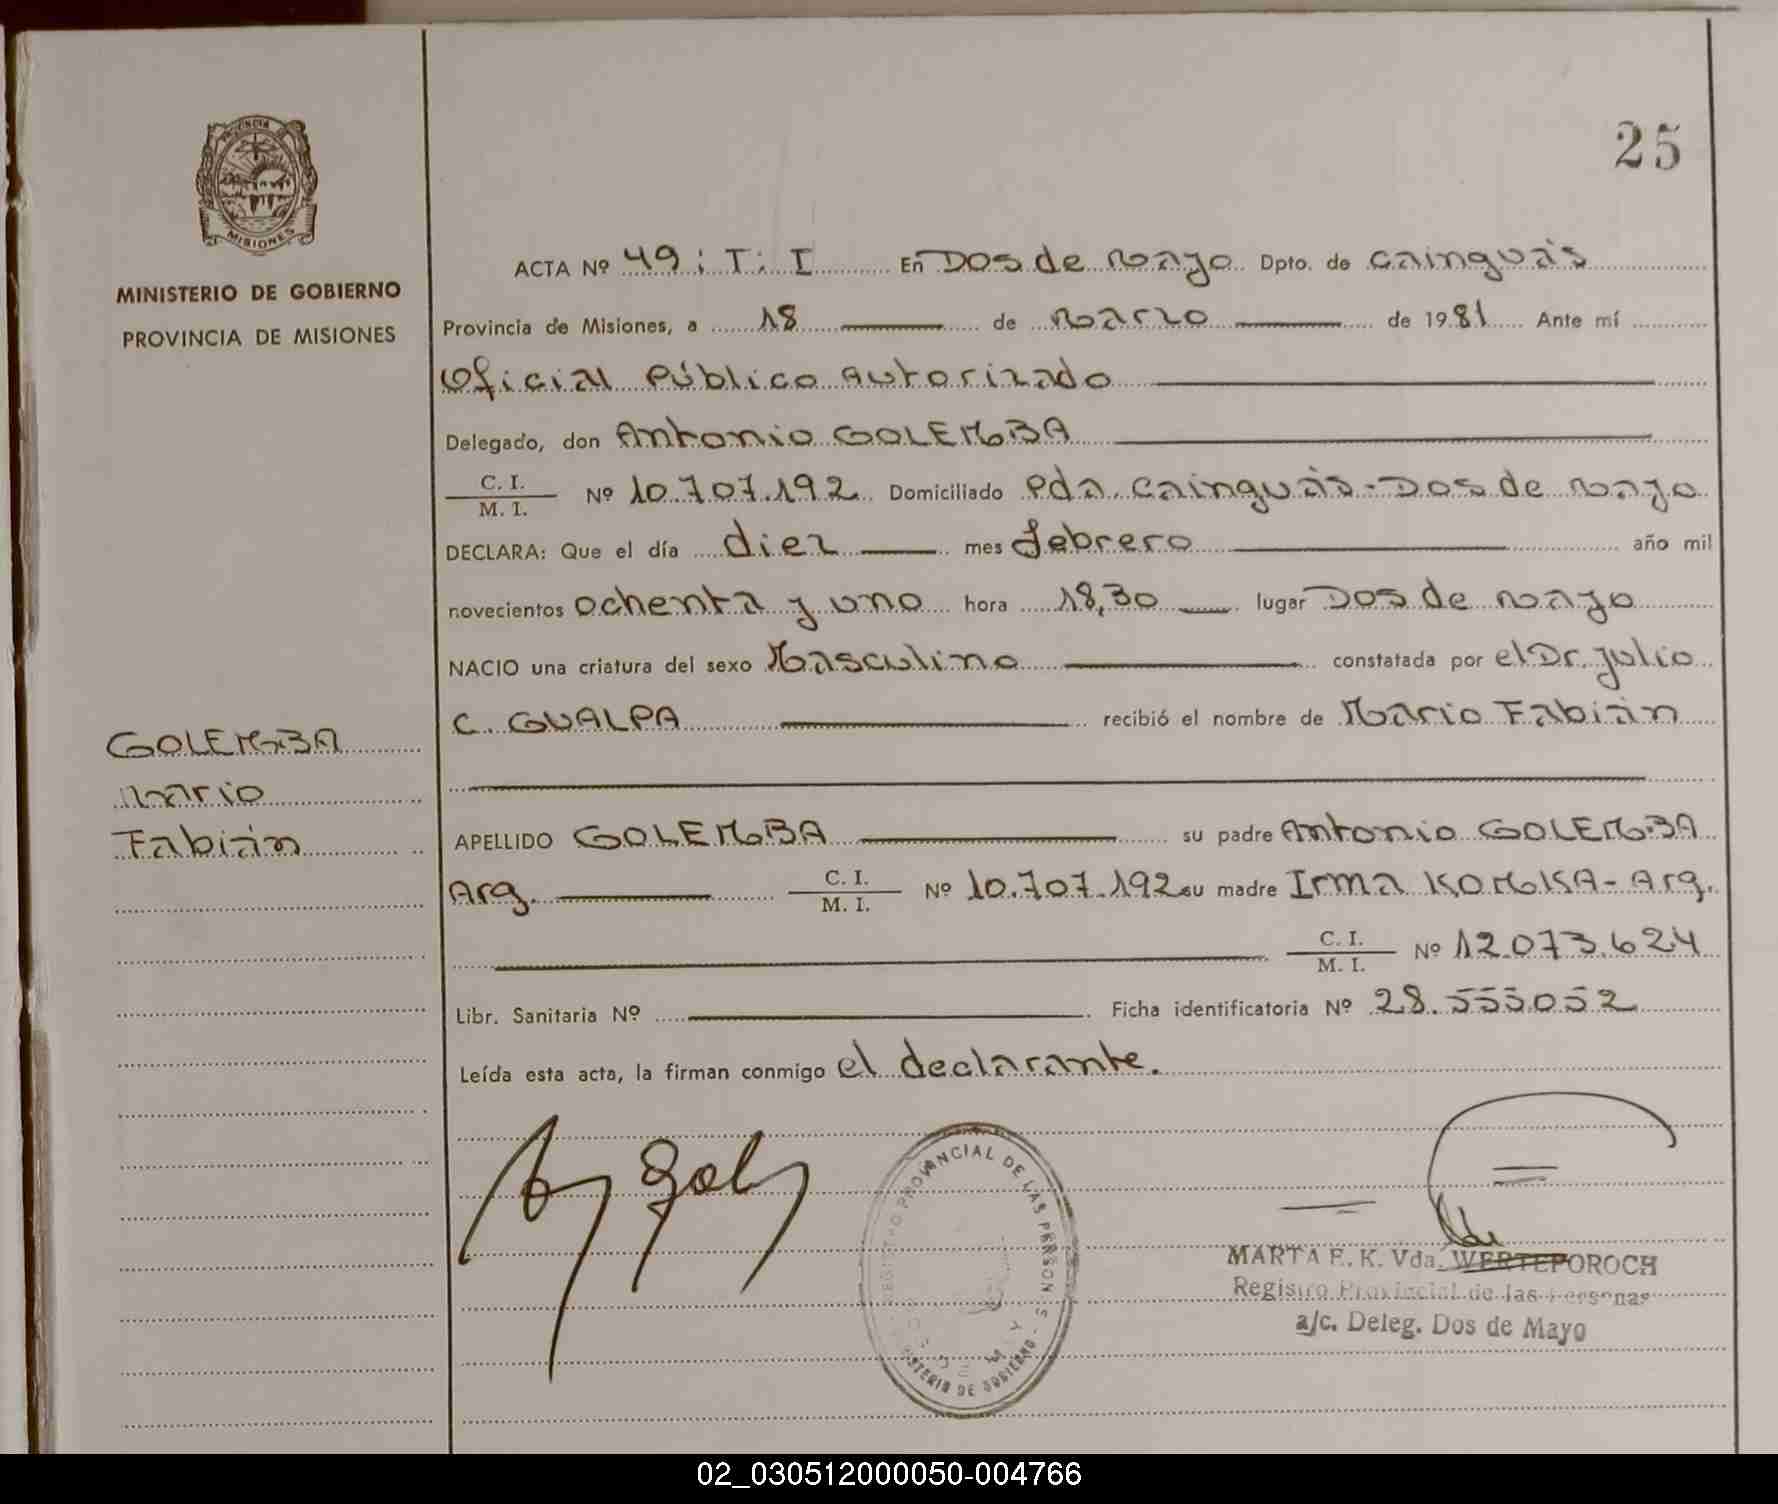 25
PROVINCIA DE
MISIONES
MINISTERIO DE GOBIERNO
PROVINCIA DE MISIONES
GOLEMBA
Mario
Fabián
ACTA Nº 49; T; I En Dos de Mayo Dpto. de Cainguás
Provincia de Misiones, a 18 de Marzo de 1981 Ante mí
Oficial Público Autorizado
Delegado, don Antonio GOLEMBA
C. I.
M. I. Nº 10.707.192 Domiciliado Pda. Cainguás - Dos de Mayo
DECLARA: Que el día diez mes febrero año mil
novecientos ochenta y uno hora 18,30 lugar Dos de Mayo
NACIO una criatura del sexo Masculino constatada por el Dr. Julio
C. GUALPA recibió el nombre de Mario Fabián
APELLIDO GOLEMBA su padre Antonio GOLEMBA
Arg. C. I.
M. I. Nº 10.707.192 su madre Irma KOMKA - Arg.
C. I.
M. I. Nº 12.073.624
Libr. Sanitaria Nº Ficha identificatoria Nº 28.555.052
Leída esta acta, la firman conmigo el declarante.
REGISTRO PROVINCIAL DE LAS PERSONAS
MINISTERIO DE GOBIERNO
MARTA E. K. Vda. WERTEPOROCH
Registro Provincial de las Personas
a/c. Deleg. Dos de Mayo
02_030512000050-004766